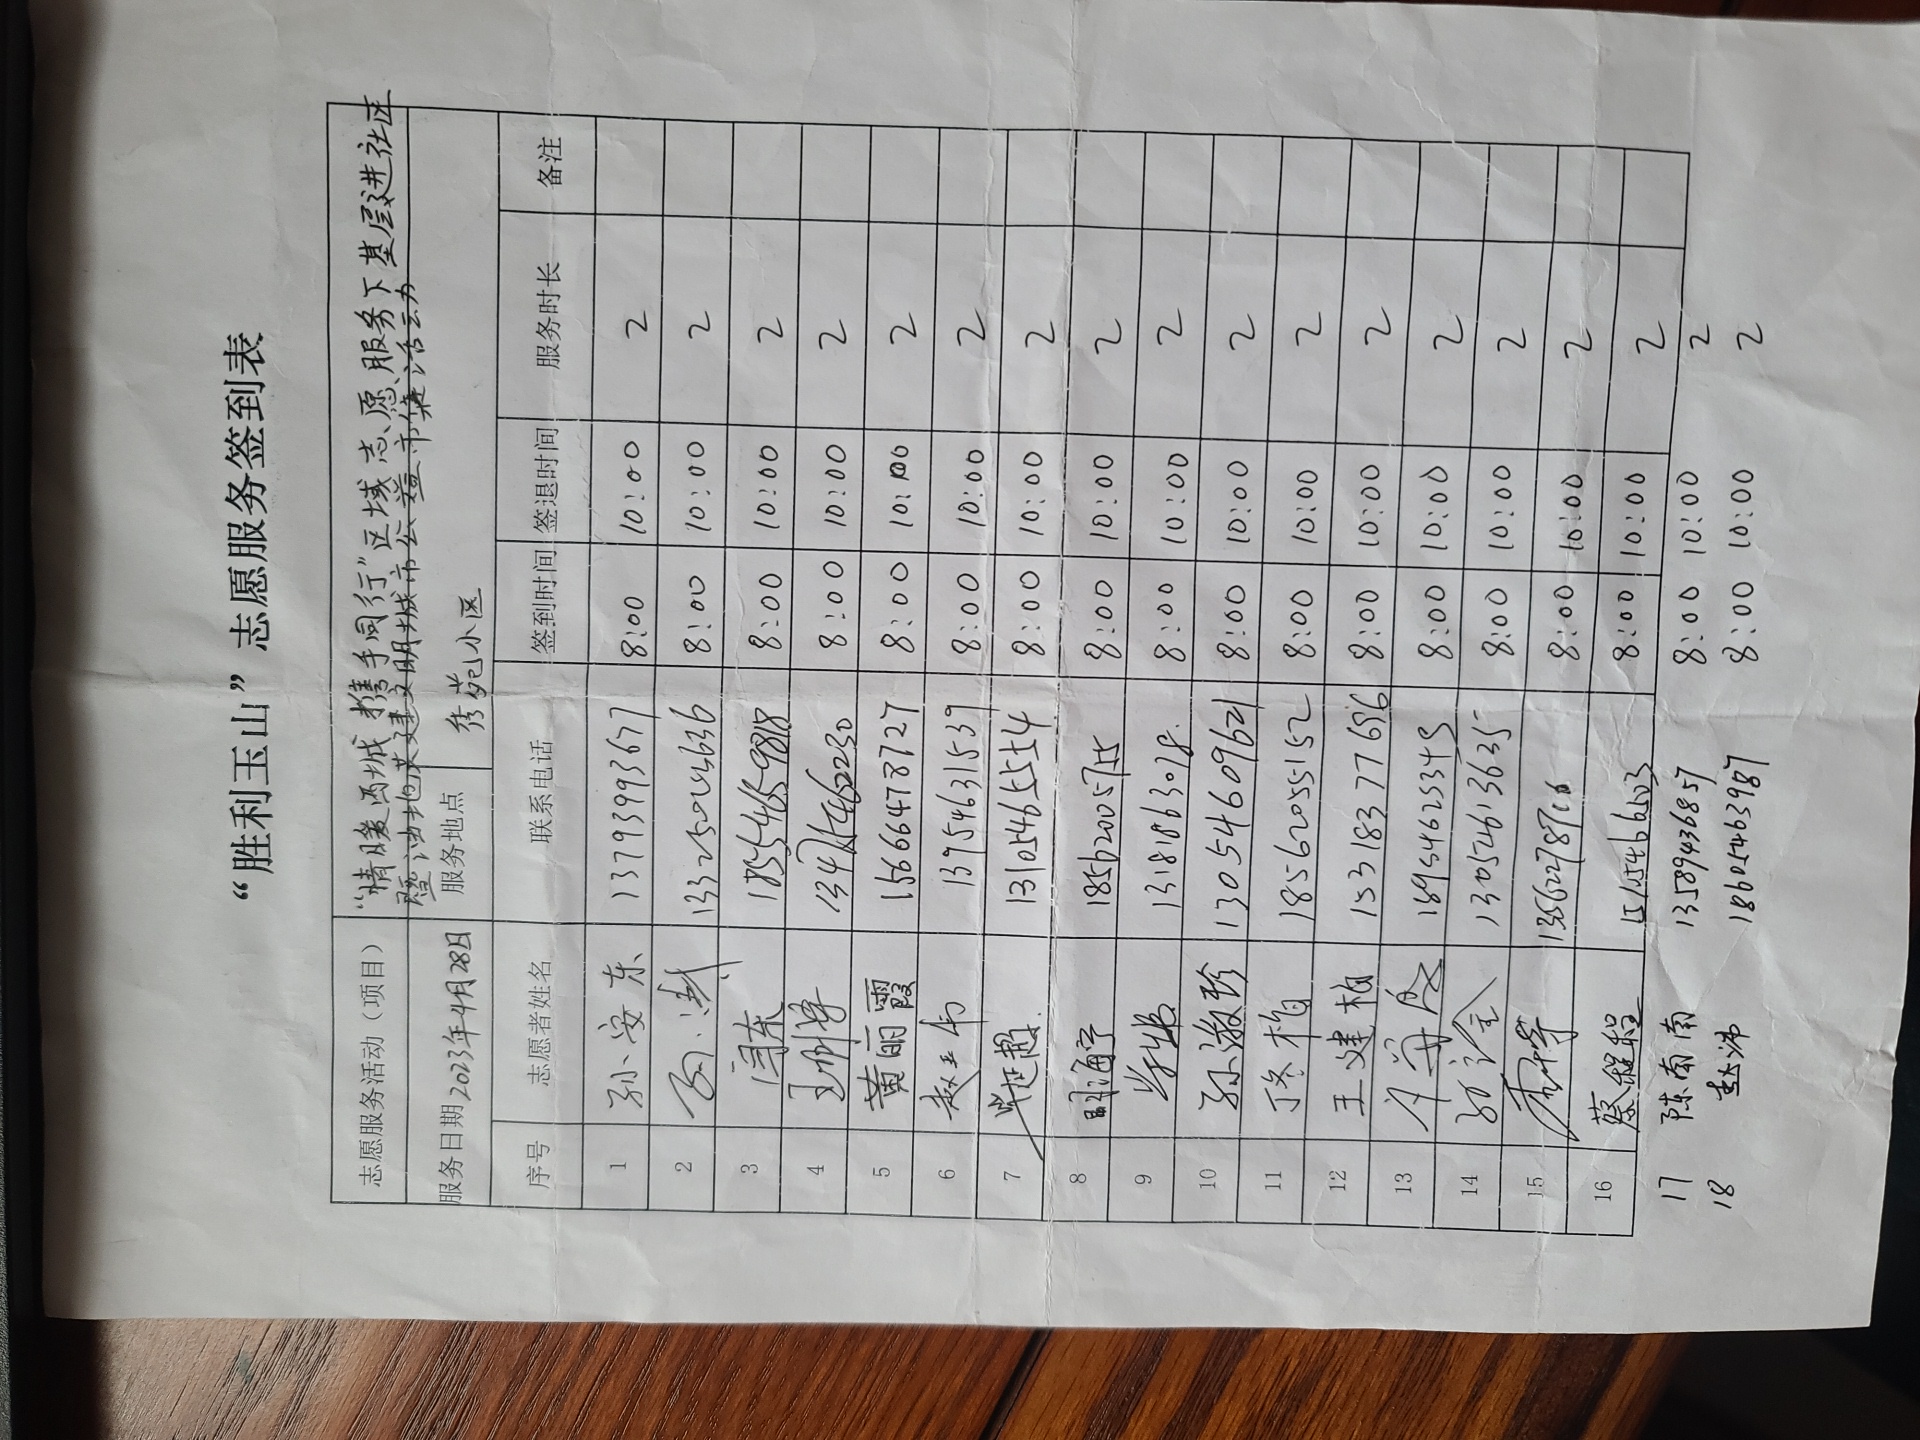 “胜利玉山”志愿服务签到表
志愿服务活动（项目） “情暖西城 携手同行”区域志愿服务下基层进社区
暨油地共建文明城市公益市集活动
服务日期 2023年4月28日 服务地点 秀苑小区
序号 志愿者姓名 联系电话 签到时间 签退时间 服务时长 备注
1 孙安东 13793993671 8:00 10:00 2
2 8:00 10:00 2
3 闫东 18554659818 8:00 10:00 2
4 8:00 10:00 2
5 黄丽霞 15666478727 8:00 10:00 2
6 13954631539 8:00 10:00 2
7 13105465554 8:00 10:00 2
8 明海宁 18562005755 8:00 10:00 2
9 13181863078 8:00 10:00 2
10 孙海珍 13054609621 8:00 10:00 2
11 丁冬梅 18562055152 8:00 10:00 2
12 王建柏 15318377696 8:00 10:00 2
13 18954623345 8:00 10:00 2
14 13052613635 8:00 10:00 2
15 8:00 10:00 2
16 蔡程程 8:00 10:00 2
17 陈南南 13589436857 8:00 10:00 2
18 18605463987 8:00 10:00 2